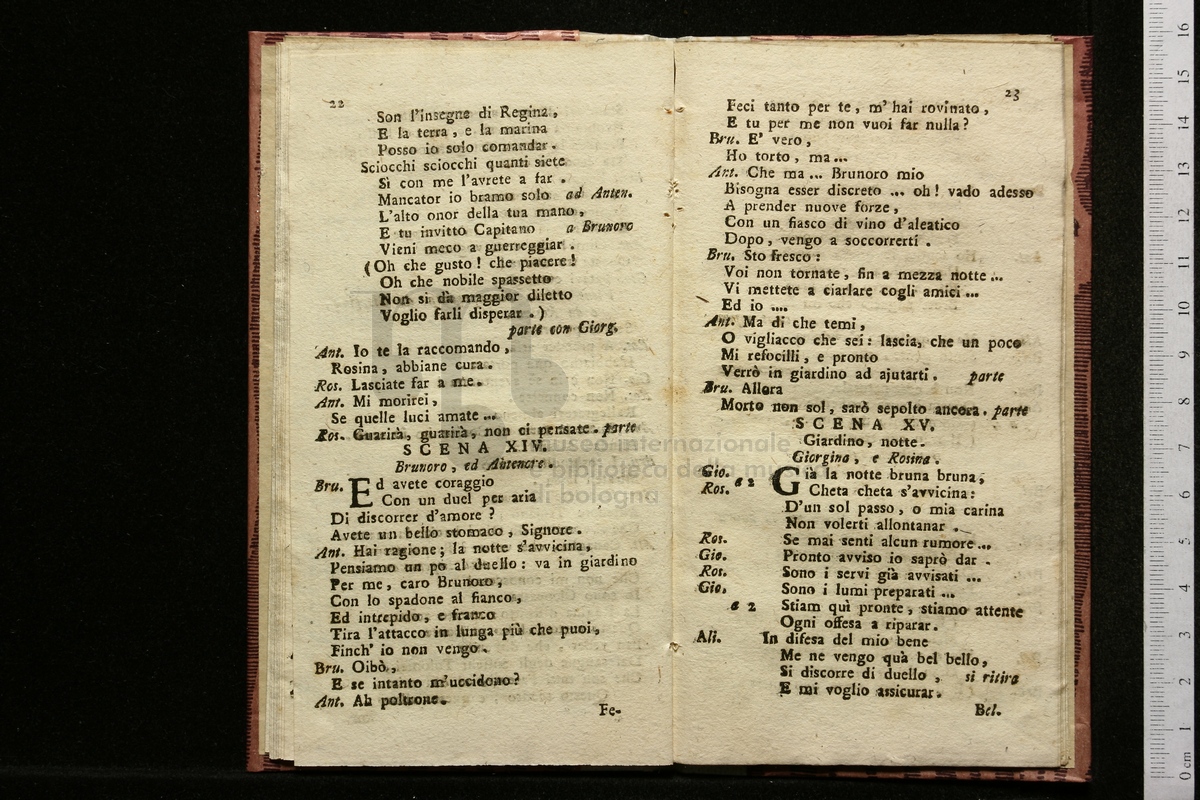 22
Son l'insegne di Regina,
E la terra, e la marina
Posso io solo comandar.
Sciocchi sciocchi quanti siete
Sì con me l'avrete a far.
Mancator io bramo solo ad Anten.
L'alto onor della tua mano,
E tu invitto Capitano a Brunoro
Vieni meco a guerreggiar.
(Oh che gusto! che piacere!
Oh che nobile spassetto
Non si dà maggior diletto
Voglio farli disperar.)
parte con Giorg.
Ant. Io te la raccomando,
Rosina, abbiane cura.
Ros. Lasciate far a me.
Ant. Mi morirei,
Se quelle luci amate...
Ros. Guarirà, guarirà, non ci pensate. parte
SCENA XIV.
Brunoro, ed Antenore.
Bru. Ed avete coraggio
Con un duel per aria
Di discorrer d'amore?
Avete un bello stomaco, Signore.
Ant. Hai ragione; la notte s'avvicina,
Pensiamo un po al duello: va in giardino
Per me, caro Brunoro,
Con lo spadone al fianco,
Ed intrepido, e franco
Tira l'attacco in lunga più che puoi,
Finch' io non vengo.
Bru. Oibò,
E se intanto m'uccidono?
Ant. Ah poltrone.
Fe-
23
Feci tanto per te, m' hai rovinato,
E tu per me non vuoi far nulla?
Bru. E' vero,
Ho torto, ma...
Ant. Che ma... Brunoro mio
Bisogna esser discreto ... oh! vado adesso
A prender nuove forze,
Con un fiasco di vino d'aleatico
Dopo, vengo a soccorrerti.
Bru. Sto fresco:
Voi non tornate, fin a mezza notte...
Vi mettete a ciarlare cogli amici...
Ed io ....
Ant. Ma di che temi,
O vigliacco che sei: lascia, che un poco
Mi refocilli, e pronto
Verrò in giardino ad ajutarti. parte
Bru. Allora
Morto non sol, sarò sepolto ancora. parte
SCENA XV.
Giardino, notte.
Giorgina, e Rosina.
Gio. Già la notte bruna bruna,
Ros. a 2 Cheta cheta s'avvicina:
D'un sol passo, o mia carina
Non volerti allontanar.
Ros. Se mai senti alcun rumore...
Gio. Pronto avviso io saprò dar.
Ros. Sono i servi già avvisati ...
Gio. Sono i lumi preparati ...
a 2 Stiam quì pronte, stiamo attente
Ogni offesa a riparar.
Ali. In difesa del mio bene
Me ne vengo quà bel bello,
Si discorre di duello, si ritira
E mi voglio assicurar.
Bel.
museo internazionale
e biblioteca della musica
di bologna
0 cm 1 2 3 4 5 6 7 8 9 10 11 12 13 14 15 16